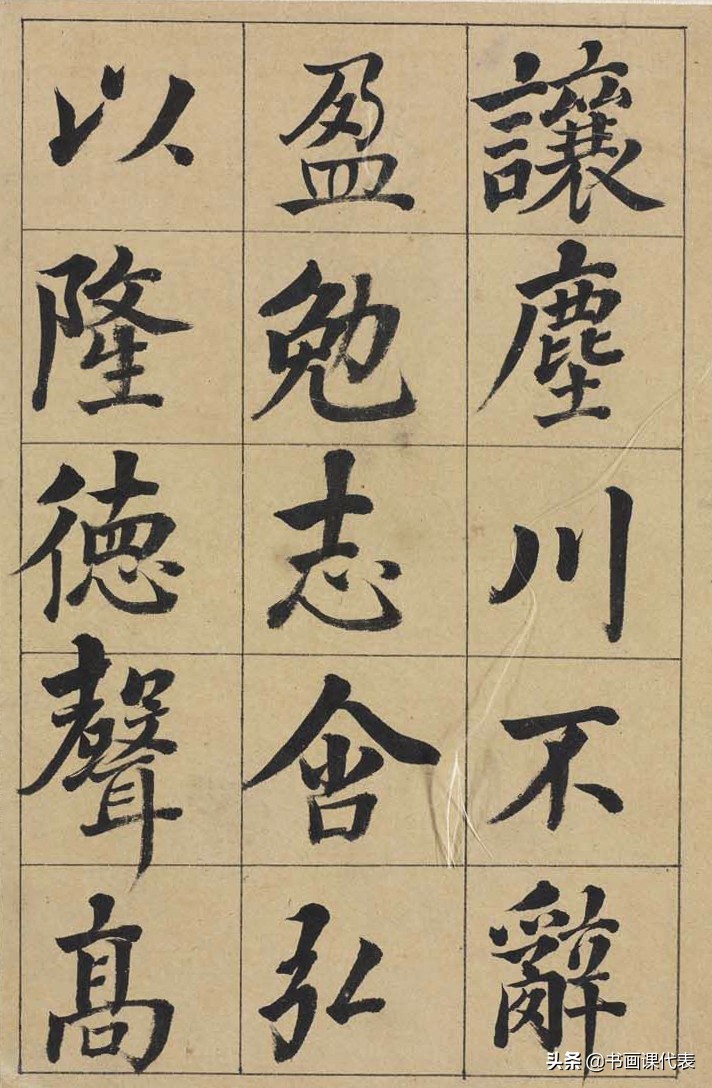 讓塵川不辭
盈勉志含弘
以隆德聲高
头条 @书画课代表